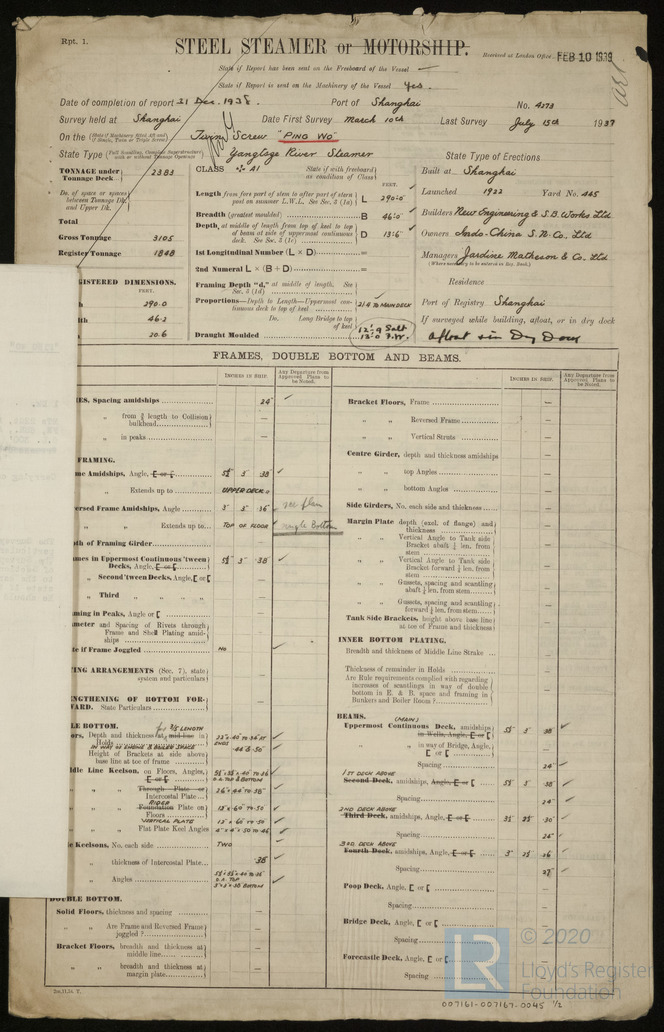 Rpt. 1.
STEEL STEAMER or MOTORSHIP.
Received at London Office FEB 10 1939
State if Report has been sent on the Freeboard of the Vessel —
State if Report is sent on the Machinery of the Vessel Yes.
Date of completion of report 21 Dec. 1938. Port of Shanghai No. 4273
Survey held at Shanghai Date First Survey March 10th Last Survey July 15th 1937
On the Twin Screw "PING WO"
State Type Yangtsze River Steamer State Type of Erections
TONNAGE under Tonnage Deck 2383
CLASS A1 State (if with freeboard) as condition of Class
Built at Shanghai
Launched 1922 Yard No. 445
Length from fore part of stem to after part of stern post on summer L.W.L. See Sec. 3 (1a) L 290.0
Breadth (greatest moulded) B 46.0
Builders New Engineering & S.B. Works Ltd
Total
Depth, at middle of length from top of keel to top of beam at side of uppermost continuous deck. See Sec. 3 (1c) D 13.6
Owners Indo-China S.N. Co., Ltd
Gross Tonnage 3105
1st Longitudinal Number (L × D) =
Managers Jardine Matheson & Co. Ltd
Register Tonnage 1848
2nd Numeral L × (B + D) =
Residence
Framing Depth "d," at middle of length. See Sec. 3 (1d)
GISTERED DIMENSIONS.
FEET.
290.0
46.2
20.6
Proportions—Depth to Length—Uppermost continuous deck to top of keel 21.4 TO MAIN DECK
Do. Long Bridge to top of keel
Port of Registry Shanghai
Draught Moulded 12'.9 Salt 13'.0 F.W.
If surveyed while building, afloat, or in dry dock
afloat & in Dry Dock
FRAMES, DOUBLE BOTTOM AND BEAMS.
INCHES IN SHIP.
Any Departure from Approved Plans to be Noted.
INCHES IN SHIP.
Any Departure from Approved Plans to be Noted.
ES, Spacing amidships 24
" from ⅗ length to Collision bulkhead —
" in peaks —
FRAMING.
me Amidships, Angle, 5½ 3 .38
" Extends up to UPPER DECK
ersed Frame Amidships, Angle 3 3 .36 see plan
" " Extends up to TOP OF FLOOR single Bottom
th of Framing Girder
ames in Uppermost Continuous 'tween Decks, Angle, 5½ 3 .38
" Second 'tween Decks, Angle,
" Third " " " "
ming in Peaks, Angle or
ameter and Spacing of Rivets through Frame and Shell Plating amidships
te if Frame Joggled NO
ING ARRANGEMENTS (Sec. 7), state system and particulars
NGTHENING OF BOTTOM FORWARD. State Particulars
LE BOTTOM.
for 3/5 LENGTH
ors, Depth and thickness at mid-line in Holds
IN WAY OF ENGINE & BOILER SPACE
Height of Brackets at side above base line at toe of frame
dle Line Keelson, on Floors, Angles,
" " Through Plate or Intercostal Plate
RIDER
" " Foundation Plate on Floors
VERTICAL PLATE
" " Flat Plate Keel Angles
e Keelsons, No. each side TWO
" thickness of Intercostal Plate .38
" Angles
DOUBLE BOTTOM.
Solid Floors, thickness and spacing
" Are Frame and Reversed Frame joggled?
Bracket Floors, breadth and thickness at middle line
" breadth and thickness at margin plate
Bracket Floors, Frame —
" " Reversed Frame —
" " Vertical Struts —
Centre Girder, depth and thickness amidships
" " top Angles —
" " bottom Angles —
Side Girders, No. each side and thickness —
Margin Plate depth (excl. of flange) and thickness
" " Vertical Angle to Tank side Bracket abaft ¼ len. from stem
" " Vertical Angle to Tank side Bracket forward ¼ len. from stem
" " Gussets, spacing and scantling abaft ¼ len. from stem
" " Gussets, spacing and scantling forward ¼ len. from stem
Tank Side Brackets, height above base line at toe of Frame and thickness
INNER BOTTOM PLATING.
Breadth and thickness of Middle Line Strake
Thickness of remainder in Holds
Are Rule requirements complied with regarding increases of scantlings in way of double bottom in E. & B. space and framing in Bunkers and Boiler Room?
BEAMS. (MAIN)
Uppermost Continuous Deck, amidships in Wells, Angle, 5½ 3 .38
" " in way of Bridge, Angle, —
Spacing 24
1ST DECK ABOVE
Second Deck, amidships, Angle, 5½ 3 .38
Spacing 24
2ND DECK ABOVE
Third Deck, amidships, Angle,
Spacing
3RD DECK ABOVE
Fourth Deck, amidships, Angle,
Spacing
Poop Deck, Angle, —
Spacing —
Bridge Deck, Angle, —
Spacing
Forecastle Deck, Angle,
Spacing
© 2020
LR
Lloyd's Register
Foundation
007161-007167-0045 ½